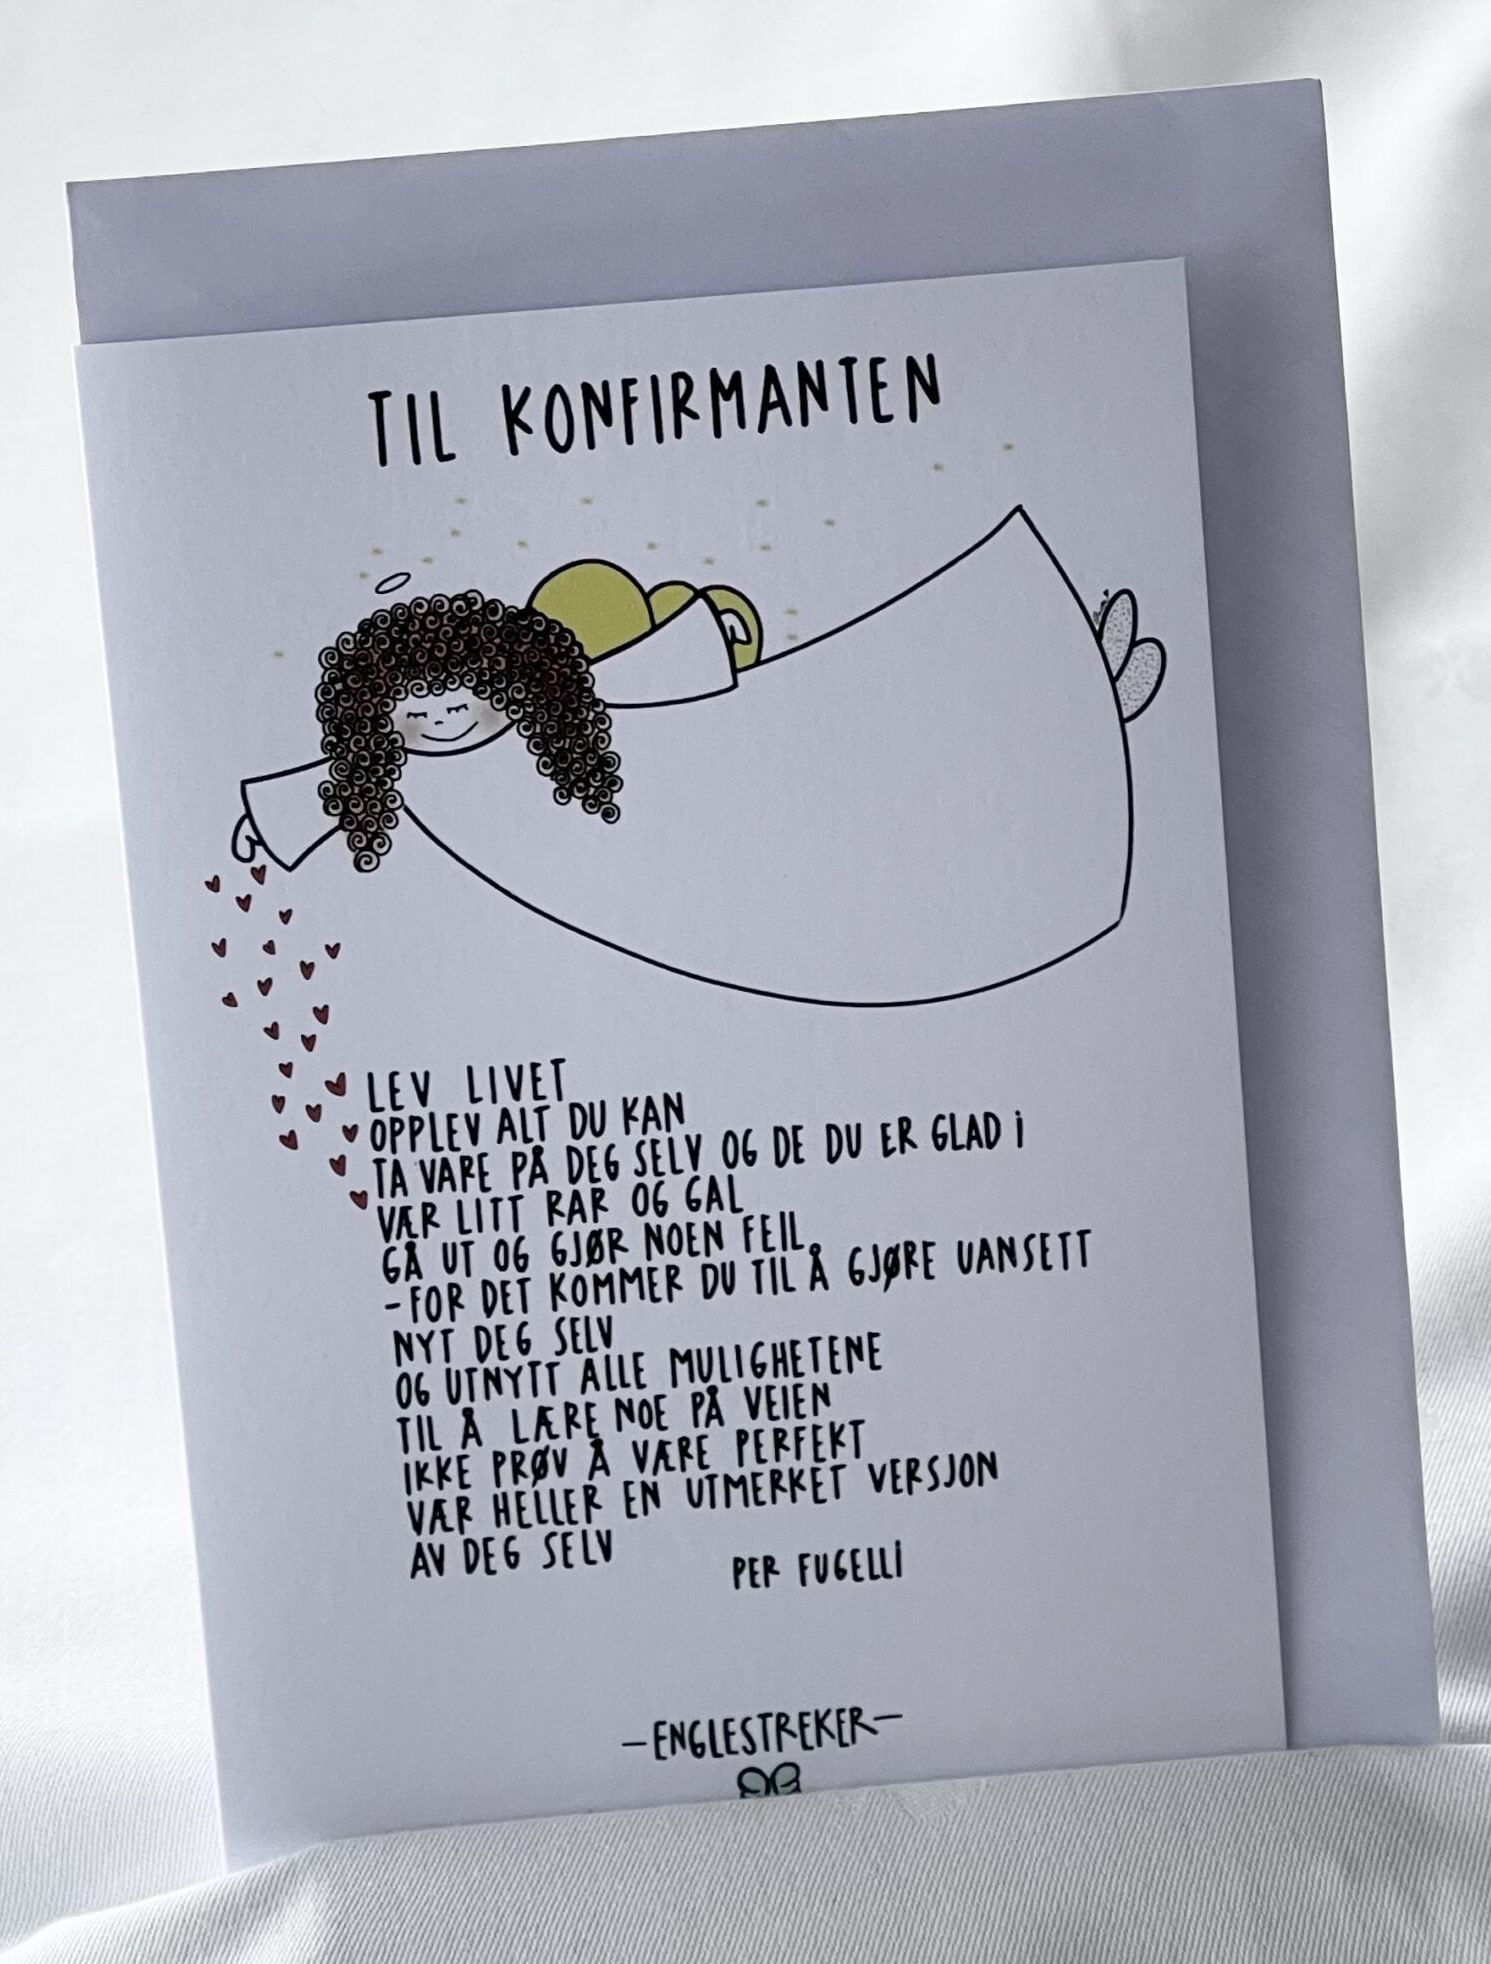 TIL KONFIRMANTEN
LEV LIVET
OPPLEV ALT DU KAN
TA VARE PÅ DEG SELV OG DE DU ER GLAD i
VÆR LITT RAR OG GAL
GÅ UT OG GJØR NOEN FEIL
-FOR DET KOMMER DU TIL Å GJØRE UANSETT
NYT DEG SELV
OG UTNYTT ALLE MULIGHETENE
TIL Å LÆRE NOE PÅ VEIEN
IKKE PRØV Å VÆRE PERFEKT
VÆR HELLER EN UTMERKET VERSJON
AV DEG SELV
PER FUGELLi
-ENGLESTREKER-